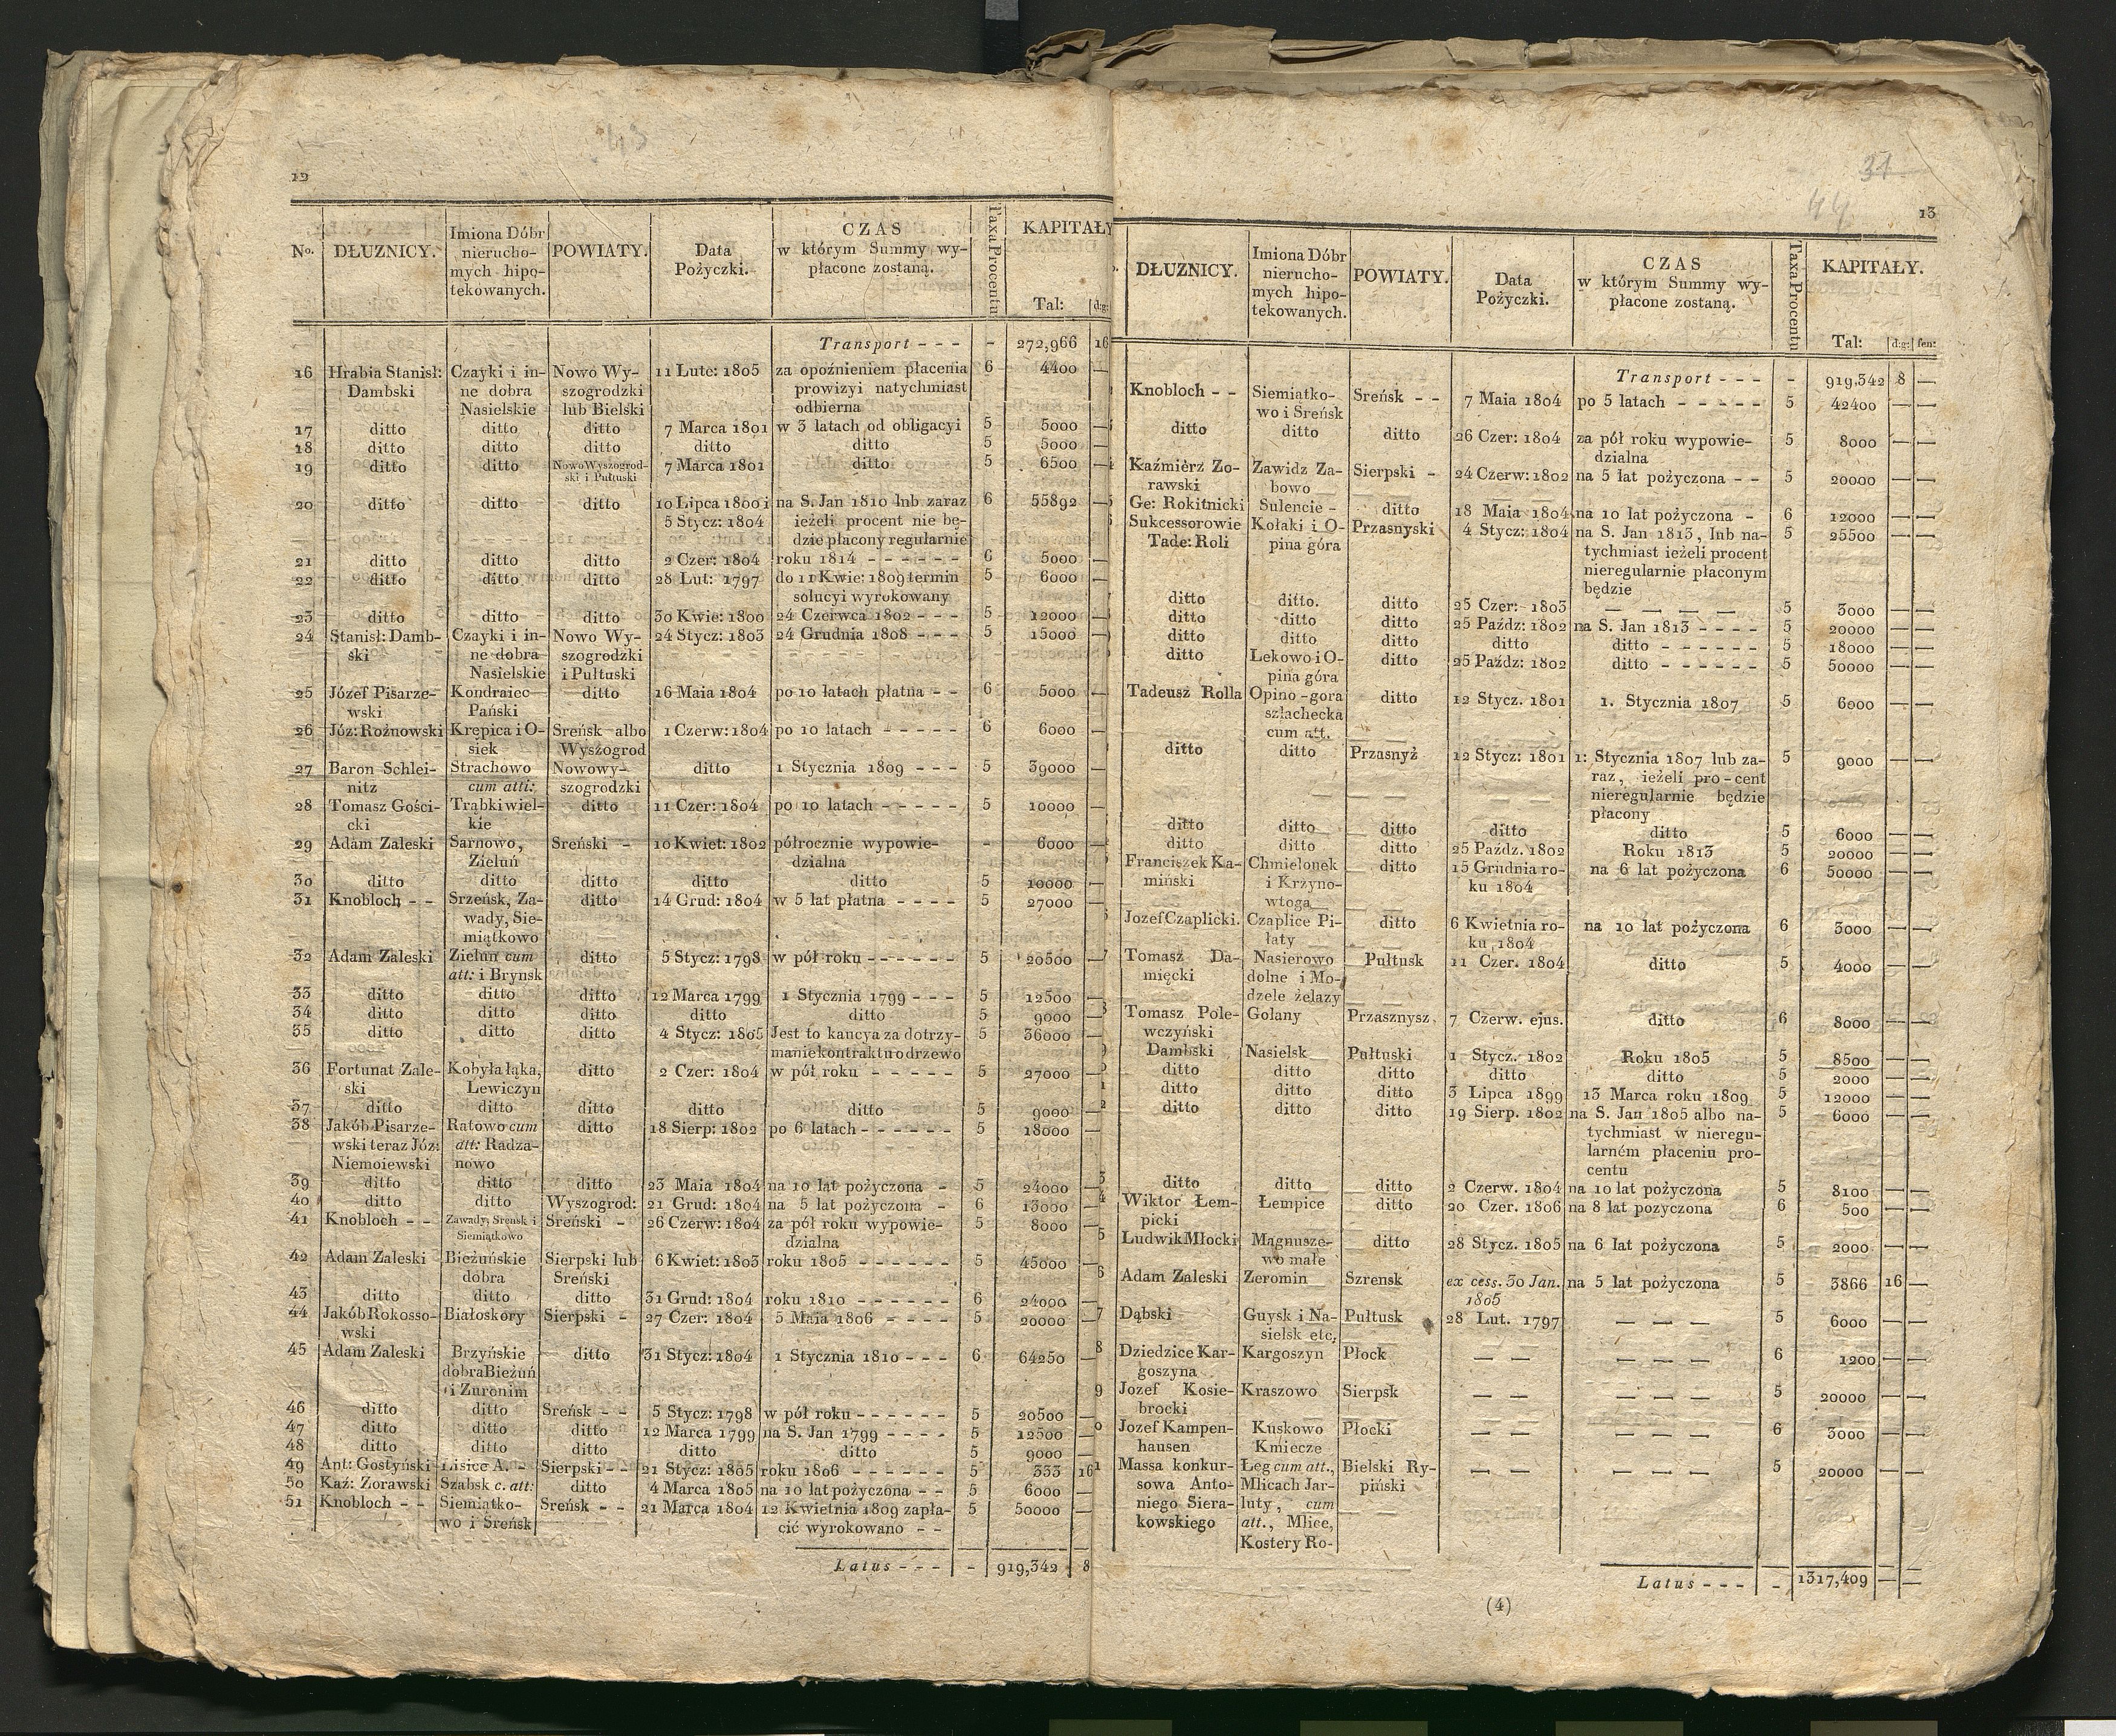 12
No. DŁUZNICY. Imiona Dóbr nierucho- mych hipo- tekowanych. POWIATY. Data Pożyczki. CZAS w którym Summy wy- płacone zostaną. Taxa Procentu KAPITAŁY
Tal: d:g:
Transport - - - - 272,966 16
16 Hrabia Stanisł: Czayki i in- Nowo Wy- 11 Lute: 1805 za opoźnieniem płacenia 6 4400 —
Dambski ne dobra szogrodzki prowizyi natychmiast
Nasielskie lub Bielski odbierna
17 ditto ditto ditto 7 Marca 1801 w 3 latach od obligacyi 5 5000 —
18 ditto ditto ditto ditto ditto 5 5000 —
19 ditto ditto NowoWyszogrod- 7 Marca 1801 ditto 5 6500 —
ski i Pułtuski
20 ditto ditto ditto 10 Lipca 1800 i na S. Jan 1810 lub zaraz 6 55892 —
5 Stycz: 1804 ieżeli procent nie bę-
dzie płacony regularnie
21 ditto ditto ditto 2 Czer: 1804 roku 1814 - - - - - - 6 5000 —
22 ditto ditto ditto 28 Lut: 1797 do 11 Kwie: 1809 termin 5 6000 —
solucyi wyrokowany
23 ditto ditto ditto 30 Kwie: 1800 24 Czerwca 1802 - - - 5 12000 —
24 Stanisł: Damb- Czayki i in- Nowo Wy- 24 Stycz: 1803 24 Grudnia 1808 - - - 5 15000 —
ski ne dobra szogrodzki
Nasielskie i Pułtuski
25 Józef Pisarze- Kondraiec ditto 16 Maia 1804 po 10 latach płatna - - 6 5000 —
wski Pański
26 Józ: Rożnowski Krępica i O- Sreńsk albo 1 Czerw: 1804 po 10 latach - - - - - 6 6000 —
siek Wyszogrod
27 Baron Schlei- Strachowo Nowowy- ditto 1 Stycznia 1809 - - - 5 39000 —
nitz cum atti: szogrodzki
28 Tomasz Gości- Trąbki wiel- ditto 11 Czer: 1804 po 10 latach - - - - - 5 10000 —
cki kie
29 Adam Zaleski Sarnowo, Sreński - 10 Kwiet: 1802 półrocznie wypowie- - 6000 —
Zieluń dzialna
30 ditto ditto ditto ditto ditto 5 10000 —
31 Knobloch - - Srzeńsk, Za- ditto 14 Grud: 1804 w 5 lat płatna - - - - 5 27000 —
wady, Sie-
miątkowo
32 Adam Zaleski Zieluń cum ditto 5 Stycz: 1798 w pół roku - - - - - - 5 20500 —
att: i Brynsk
33 ditto ditto ditto 12 Marca 1799 1 Stycznia 1799 - - - 5 12500 —
34 ditto ditto ditto ditto ditto 5 9000 —
35 ditto ditto ditto 4 Stycz: 1805 Jest to kaucya za dotrzy- 5 36000 —
manie kontraktu o drzewo
36 Fortunat Zale- Kobyła łąka, ditto 2 Czer: 1804 w pół roku - - - - - 5 27000 —
ski Lewiczyn
37 ditto ditto ditto ditto ditto 5 9000 —
38 Jakób Pisarze- Ratowo cum ditto 18 Sierp: 1802 po 6 latach - - - - - - 5 18000 —
wski teraz Józ: att: Radza-
Niemoiewski nowo
39 ditto ditto ditto 23 Maia 1804 na 10 lat pożyczona - 5 24000 —
40 ditto ditto Wyszogrod: 21 Grud: 1804 na 5 lat pożyczona - 6 13000 —
41 Knobloch - - Zawady, Sreńsk i Sreński - 26 Czerw: 1804 za pół roku wypowie- 5 8000 —
Siemiątkowo dzialna
42 Adam Zaleski Bieżuńskie Sierpski lub 6 Kwiet: 1803 roku 1805 - - - - - - 5 45000 —
dobra Sreński
43 ditto ditto ditto 31 Grud: 1804 roku 1810 - - - - - - 6 24000 —
44 Jakób Rokosso- Białoskory Sierpski - 27 Czer: 1804 5 Maia 1806 - - - - 5 20000 —
wski
45 Adam Zaleski Brzyńskie ditto 31 Stycz: 1804 1 Stycznia 1810 - - - 6 64250 —
dobra Bieżuń
i Zuronim
46 ditto ditto Sreńsk - - 5 Stycz: 1798 w pół roku - - - - - - 5 20500 —
47 ditto ditto ditto 12 Marca 1799 na S. Jan 1799 - - - - 5 12500 —
48 ditto ditto ditto ditto ditto 5 9000 —
49 Ant: Gostyński Lisice A. - Sierpski - - 21 Stycz: 1805 roku 1806 - - - - - - 5 333 16
50 Kaź: Zorawski Szabsk c. att: ditto 4 Marca 1805 na 10 lat pożyczona - - 5 6000 —
51 Knobloch - - Siemiątko- Sreńsk - - 21 Marca 1804 12 Kwietnia 1809 zapła- 5 50000 —
wo i Sreńsk cić wyrokowano - -
Latus - - - - 919,342 8
31
44
13
DŁUZNICY. Imiona Dóbr nierucho- mych hipo- tekowanych. POWIATY. Data Pożyczki. CZAS w którym Summy wy- płacone zostaną. Taxa Procentu KAPITAŁY.
Tal: d:g: fen:
Transport - - - - 919,342 8 —
Knobloch - - Siemiątko- Sreńsk - - 7 Maia 1804 po 5 latach - - - - - 5 42400 — —
wo i Sreńsk
ditto ditto ditto 26 Czer: 1804 za pół roku wypowie- 5 8000 — —
dzialna
Kaźmiérz Zo- Zawidz Za- Sierpski - 24 Czerw: 1802 na 5 lat pożyczona - - 5 20000 — —
rawski bowo
Ge: Rokitnicki Sulencie - ditto 18 Maia 1804 na 10 lat pożyczona - 6 12000 — —
Sukcessorowie Kołaki i O- Przasnyski 4 Stycz: 1804 na S. Jan 1813, lub na- 5 25500 — —
Tade: Roli pina góra tychmiast ieżeli procent
nieregularnie płaconym
będzie
ditto ditto. ditto 25 Czer: 1803 — — — — 5 3000 — —
ditto ditto ditto 25 Paźdz: 1802 na S. Jan 1813 - - - - 5 20000 — —
ditto ditto ditto ditto ditto - - - - - - 5 18000 — —
ditto Lekowo i O- ditto 25 Paźdz: 1802 ditto - - - - - - 5 50000 — —
pina góra
Tadeusz Rolla Opino-gora ditto 12 Stycz. 1801 1. Stycznia 1807 5 6000 — —
szlachecka
cum att.
ditto ditto Przasnyż 12 Stycz: 1801 1: Stycznia 1807 lub za- 5 9000 — —
raz, ieżeli pro-cent
nieregularnie będzie
płacony
ditto ditto ditto ditto ditto 5 6000 — —
ditto ditto ditto 25 Paźdz. 1802 Roku 1813 5 20000 — —
Franciszek Ka- Chmielonek ditto 15 Grudnia ro- na 6 lat pożyczona 6 50000 — —
miński i Krzyno- ku 1804
wtoga
Jozef Czaplicki. Czaplice Pi- ditto 6 Kwietnia ro- na 10 lat pożyczona 6 3000 — —
łaty ku 1804
Tomasz Da- Nasierowo Pułtusk 11 Czer. 1804 ditto 5 4000 — —
mięcki dolne i Mo-
dzele żelazy
Tomasz Pole- Gołany Przasznysz. 7 Czerw. ejus. ditto 6 8000 — —
wczyński
Dambski Nasielsk Pułtuski 1 Stycz. 1802 Roku 1805 5 8500 — —
ditto ditto ditto ditto ditto 5 2000 — —
ditto ditto ditto 3 Lipca 1899 13 Marca roku 1809 5 12000 — —
ditto ditto ditto 19 Sierp. 1802 na S. Jan 1805 albo na- 5 6000 — —
tychmiast w nieregu-
larném płaceniu pro-
centu
ditto ditto ditto 2 Czerw. 1804 na 10 lat pożyczona 5 8100 — —
Wiktor Łem- Łempice ditto 20 Czer. 1806 na 8 lat pozyczona 6 500 — —
picki
Ludwik Młocki Magnusze- ditto 28 Stycz. 1805 na 6 lat pożyczona 5 2000 — —
wo małe
Adam Zaleski Zeromin Szrensk ex cess. 30 Jan. na 5 lat pożyczona 5 3866 16 —
1805
Dąbski Guysk i Na- Pułtusk 28 Lut. 1797 — — — 5 6000 — —
sielsk etc.
Dziedzice Kar- Kargoszyn Płock — — — — — 6 1200 — —
goszyna
Jozef Kosie- Kraszowo Sierpsk — — — — — 5 20000 — —
brocki
Jozef Kampen- Kuskowo Płocki — — — — — 6 3000 — —
hausen Kmiecze
Massa konkur- Łeg cum att., Bielski Ry- — — — — — 5 20000 — —
sowa Anto- Mlicach Jar- piński
niego Siera- luty, cum
kowskiego att., Mlice,
Kostery Ro-
Latus - - - - 1317,409 — —
(4)